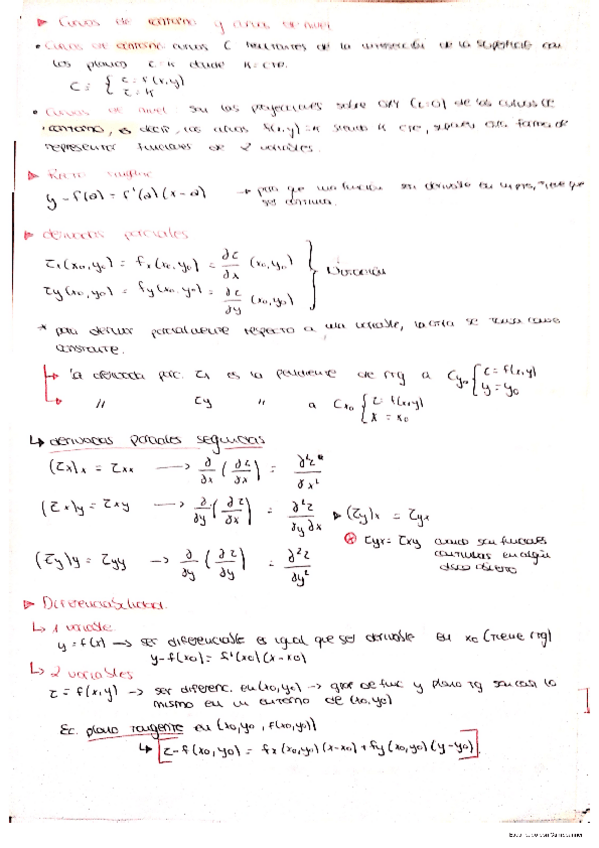 ▸ Curvas de contorno y curvas de nivel
• Curvas de contorno: curvas C resultantes de la intersección de la superficie con
los planos z = k donde k = cte.
C = { z = f(x,y)
z = k
• Curvas de nivel: son las proyecciones sobre (z=0) de las curvas de
contorno, es decir, las curvas f(x,y) = k siendo k cte, forma de
representar funciones de 2 variables.
▸ Recta tangente
y - f(a) = f'(a)(x-a) → para que una función sea derivable en un pto, tiene que
ser continua.
▸ derivadas parciales
zx(x0,y0) = fx(x0,y0) = ∂z/∂x (x0,y0)
zy(x0,y0) = fy(x0,y0) = ∂z/∂y (x0,y0) } Notación
* para derivar parcialmente respecto a una variable, la otra se toma como
constante.
↳ la derivada parc. zx es la pendiente de rtg a Cy0 { z = f(x,y)
y = y0
↳ // zy // a Cx0 { z = f(x,y)
x = x0
↳ derivadas parciales segundas
(zx)x = zxx → ∂/∂x (∂z/∂x) = ∂²z/∂x²
(zx)y = zxy → ∂/∂y (∂z/∂x) = ∂²z/∂y∂x ▸ (zy)x = zyx
⊛ zyx = zxy cuando son funciones
continuas en algún
disco abierto
(zy)y = zyy → ∂/∂y (∂z/∂y) = ∂²z/∂y²
▸ Diferenciabilidad
↳ 1 variable
y = f(x) → ser diferenciable es igual que ser derivable en x0 (tiene rtg)
y-f(x0) = f'(x0)(x-x0)
↳ 2 variables
z = f(x,y) → ser diferenc. en (x0,y0) → graf de func y plano tg son casi lo
mismo en un entorno de (x0,y0)
Ec. plano tangente en (x0,y0, f(x0,y0))
↳ z-f(x0,y0) = fx(x0,y0)(x-x0) + fy(x0,y0)(y-y0)